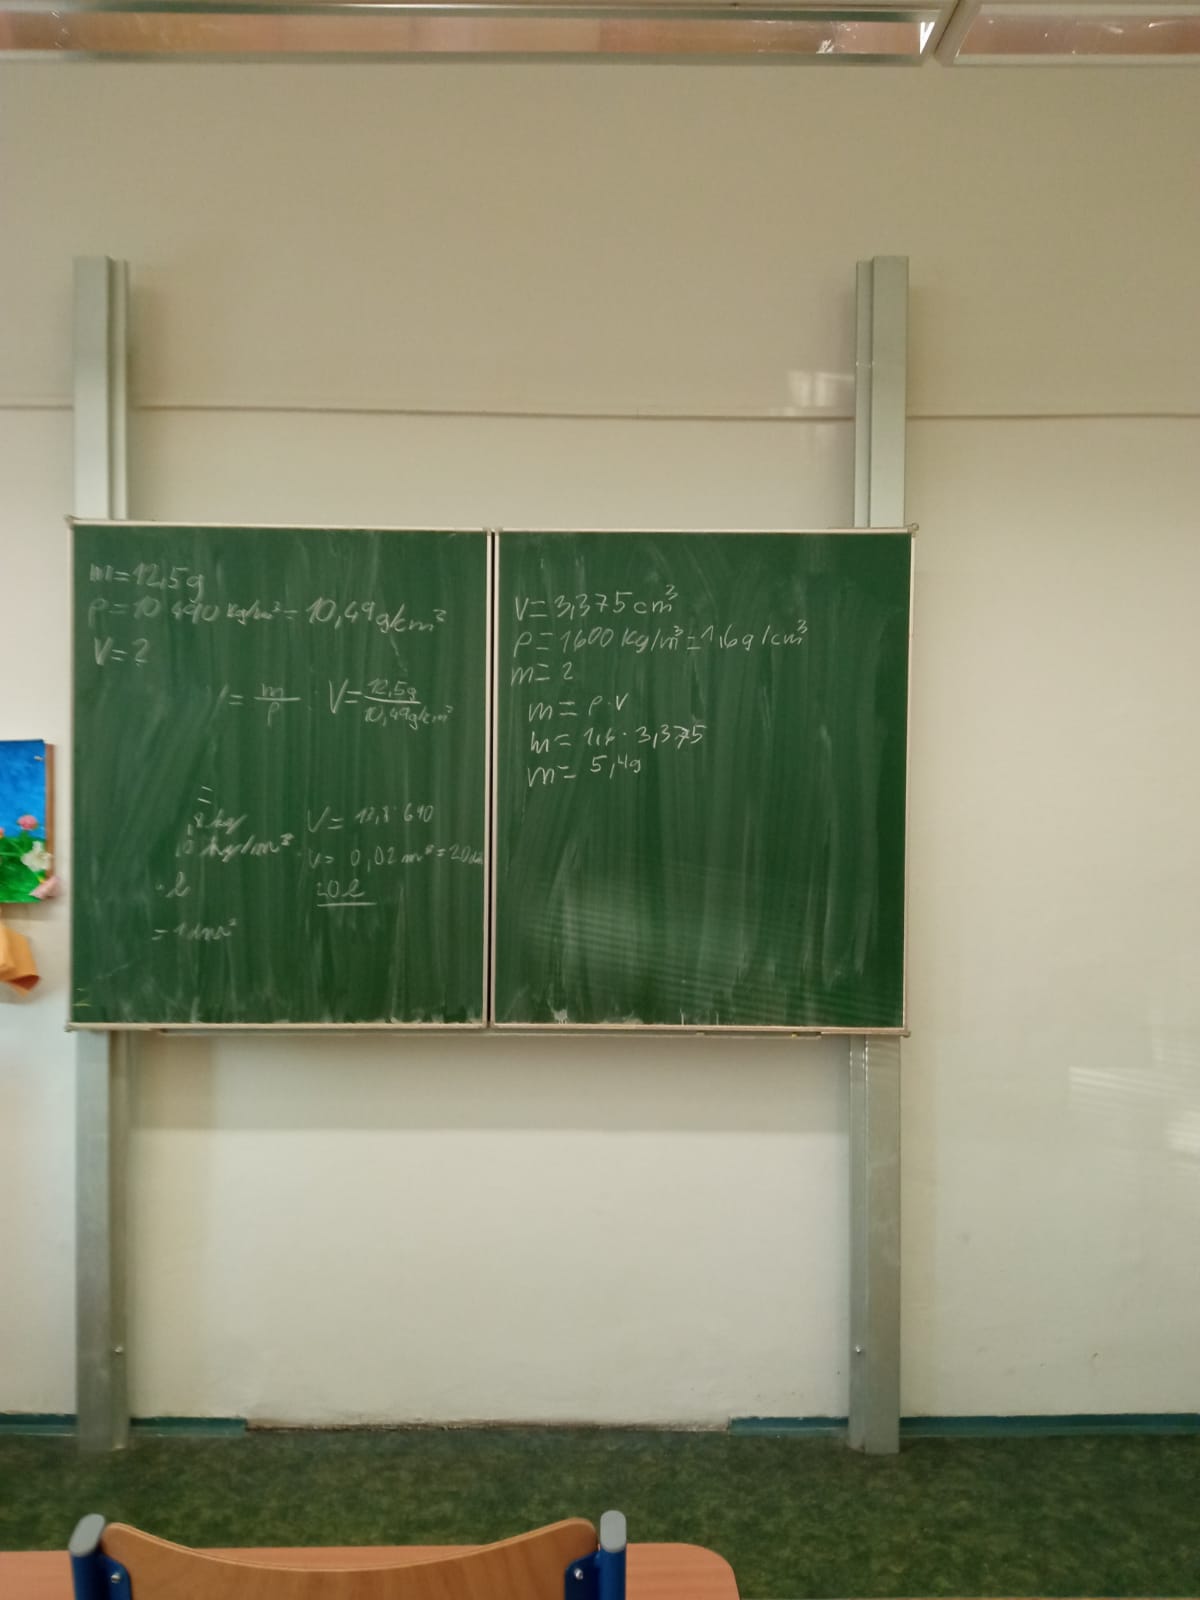 m=12,5g
ρ=10 490 kg/m³=10,49g/cm³
V=?
= m/ρ V= 12,5g/10,49g/cm³
=
kg V= 12,8:640
kg/m³ V= 0,02 m³=20
l 20l
=1dm³
V=3,375cm³
ρ=1600 kg/m³=1,6g/cm³
m=?
m=ρ·V
m=1,6·3,375
m=5,4g